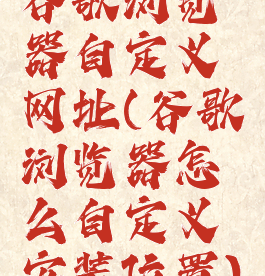 谷歌浏览
器自定义
网址(谷歌
浏览器怎
么自定义
安装位置)